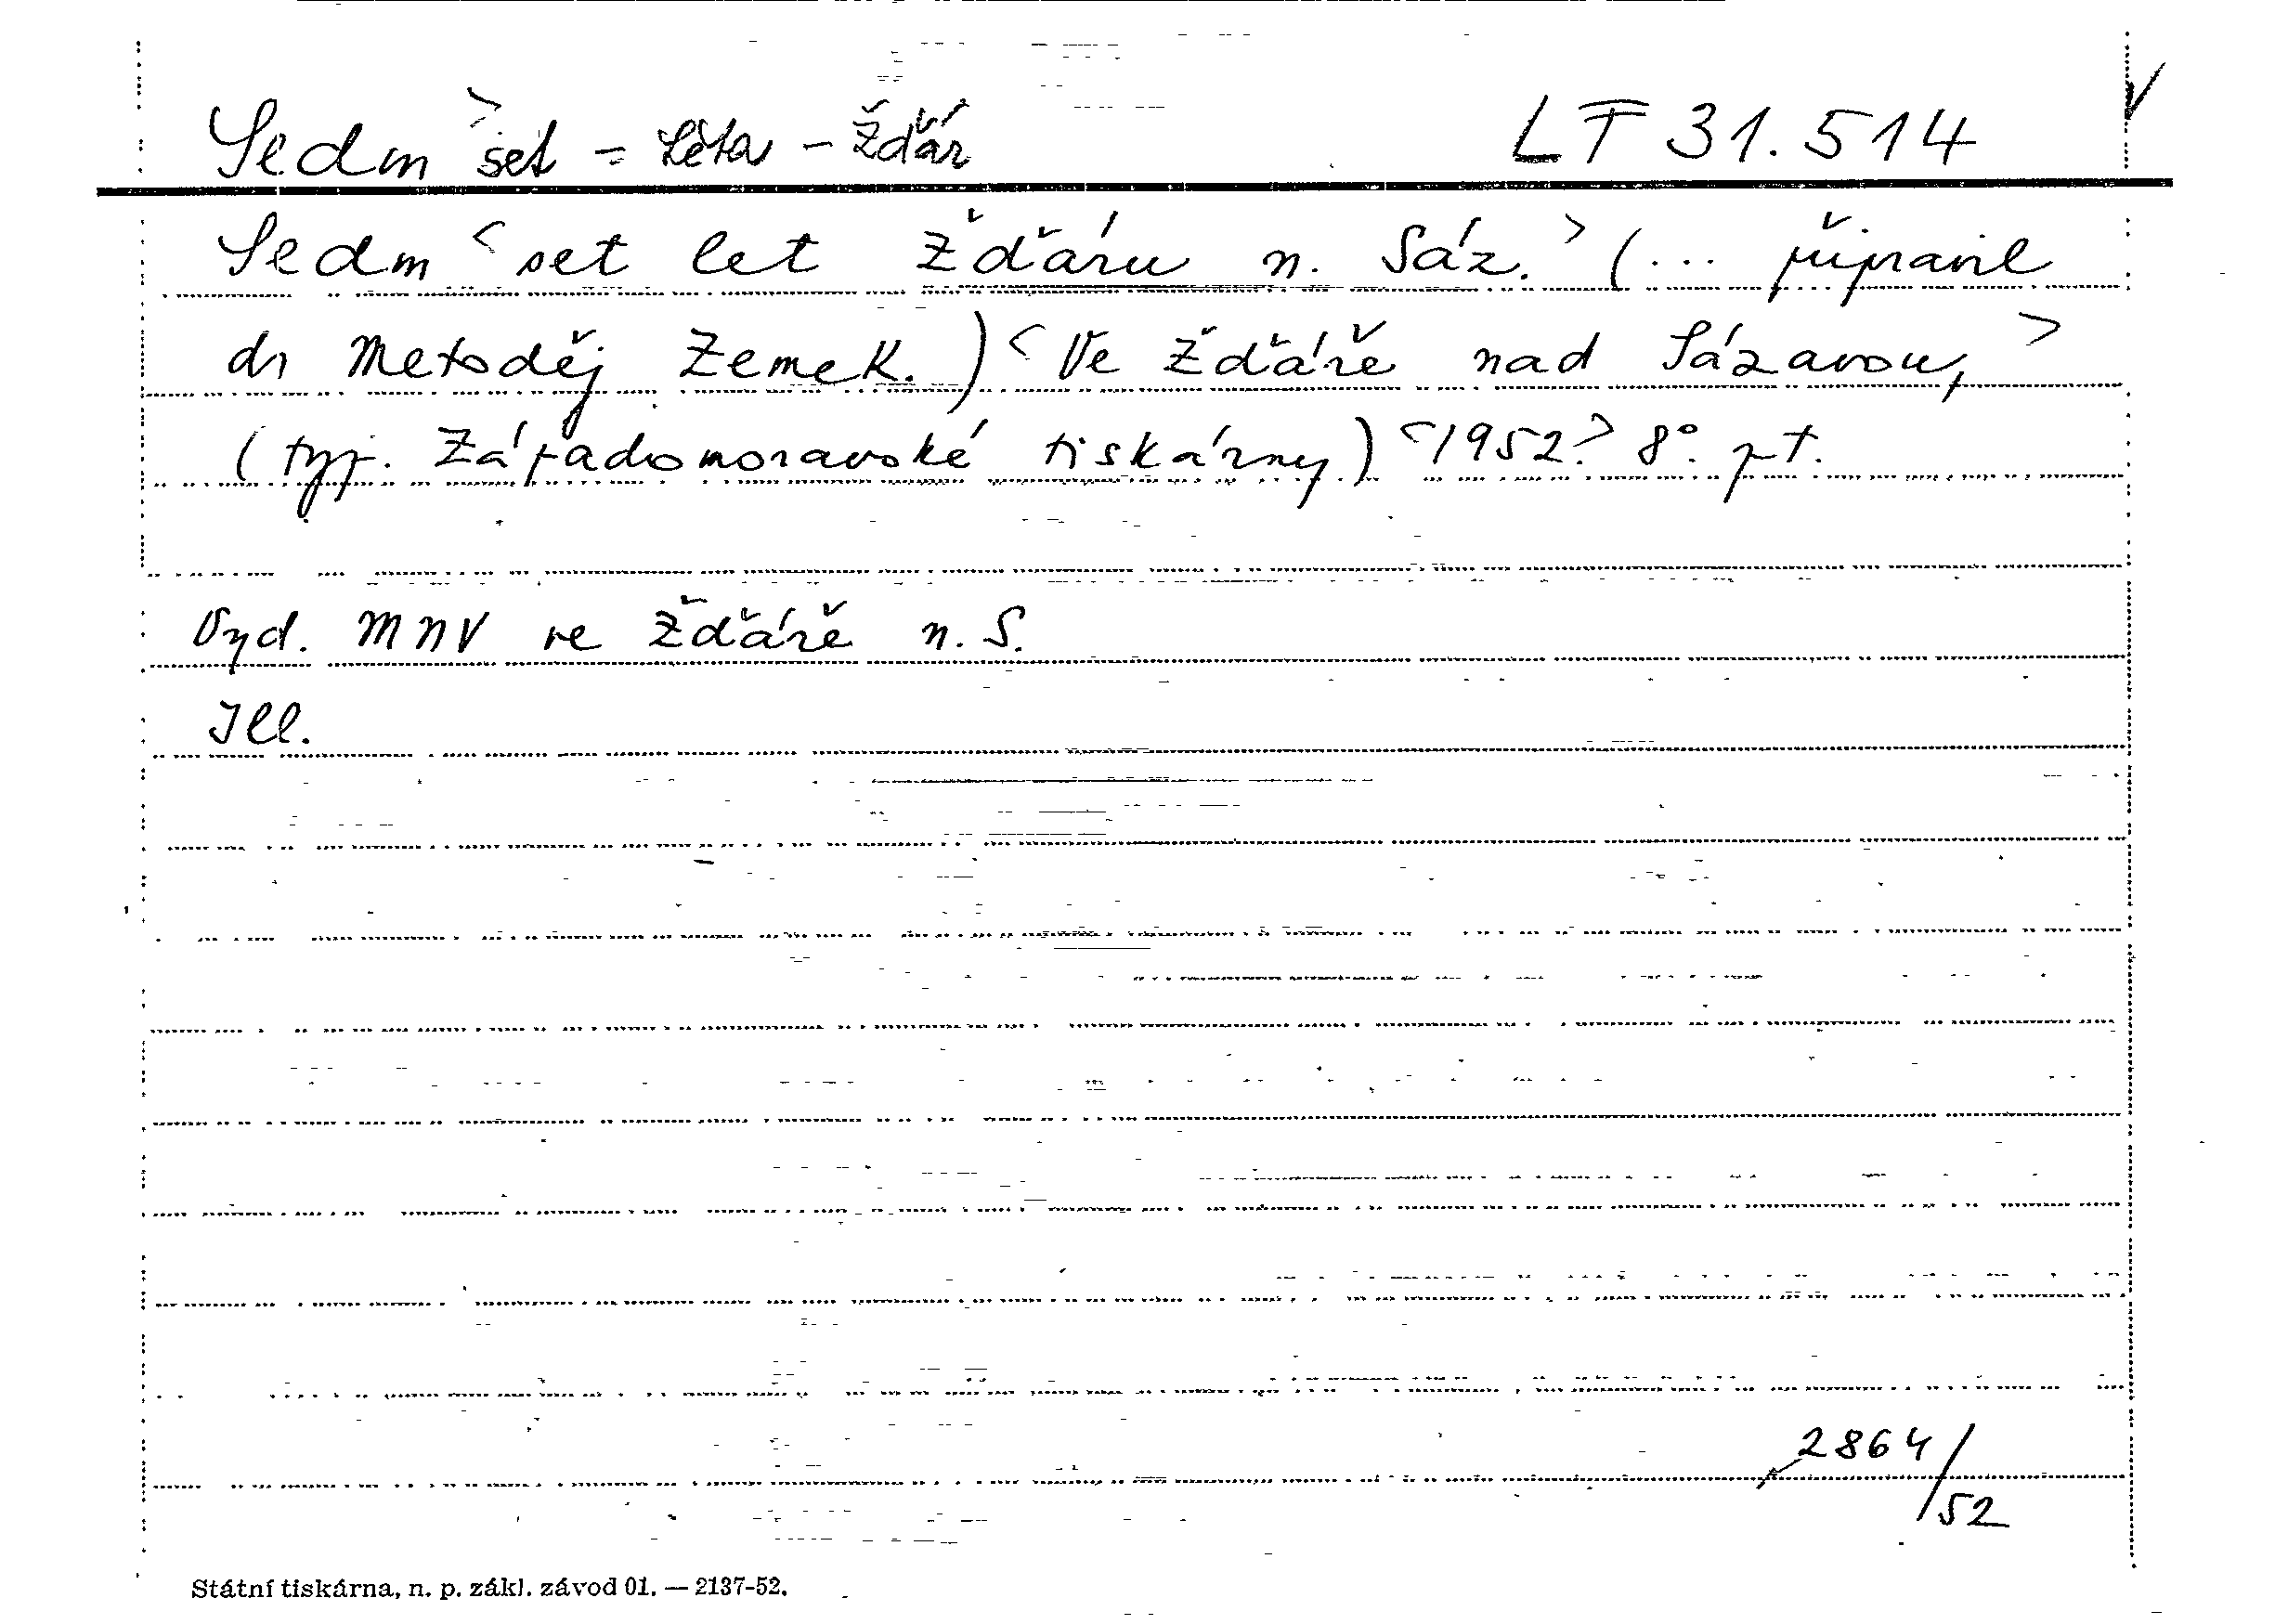 Sedm > set = Léta - Žďár LT 31.514
Sedm < set let Žďáru n. Sáz. > (... připravil
dr Metoděj Zemek.) < Ve Žďáře nad Sázavou, >
(typ. Západomoravské tiskárny) < 1952. > 8°. pt.
Vyd. MNV ve Žďáře n. S.
Ill.
2864/52
Státní tiskárna, n. p. zákl. závod 01. — 2137-52.